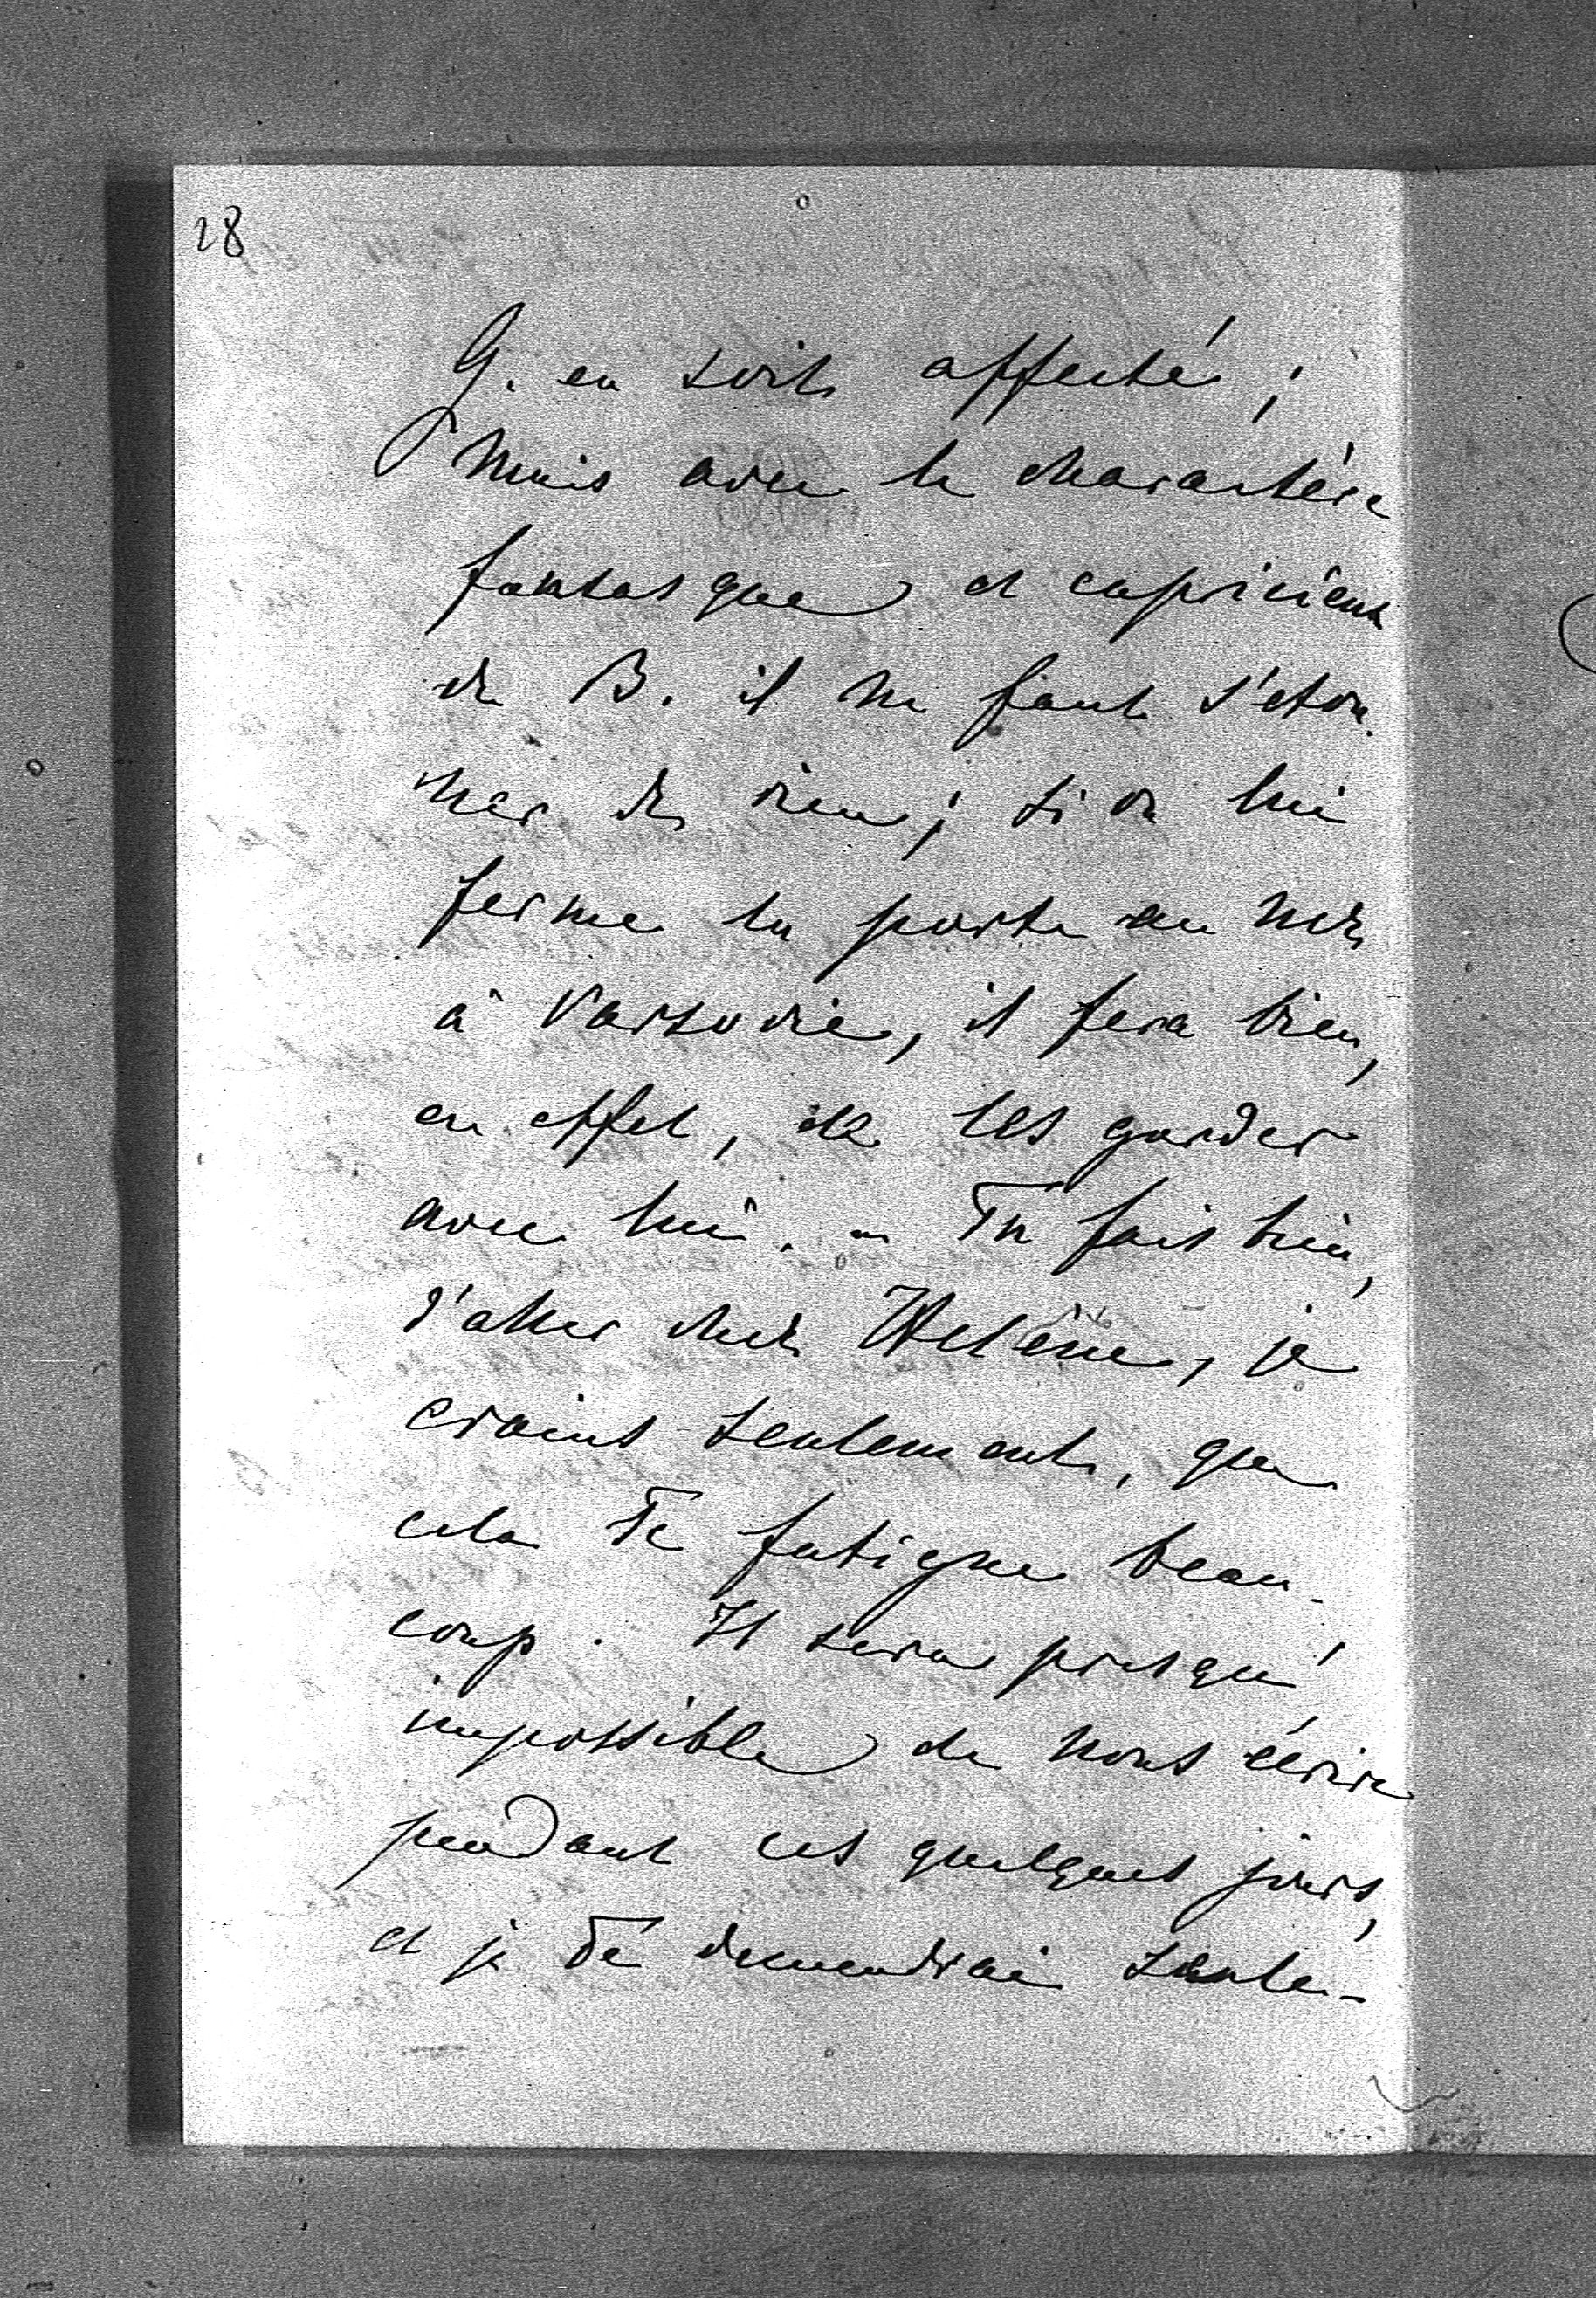 28
G. en soit affecté ;
Mais avec le charactère
fantasque et capricieux
de B. il ne faut s'eton
ner de rien ; si on lui
ferme la porte au nez
à Varsovie, il fera bien,
en effet, de les garder
avec lui. – Tu fais bien,
d'aller chez Helène, je
crains seulement, que
cela Te fatigue beau-
coup. Il sera presqu'
impossible de nous écrire
pendant ces quelques jours,
et je Te demendrai seule-